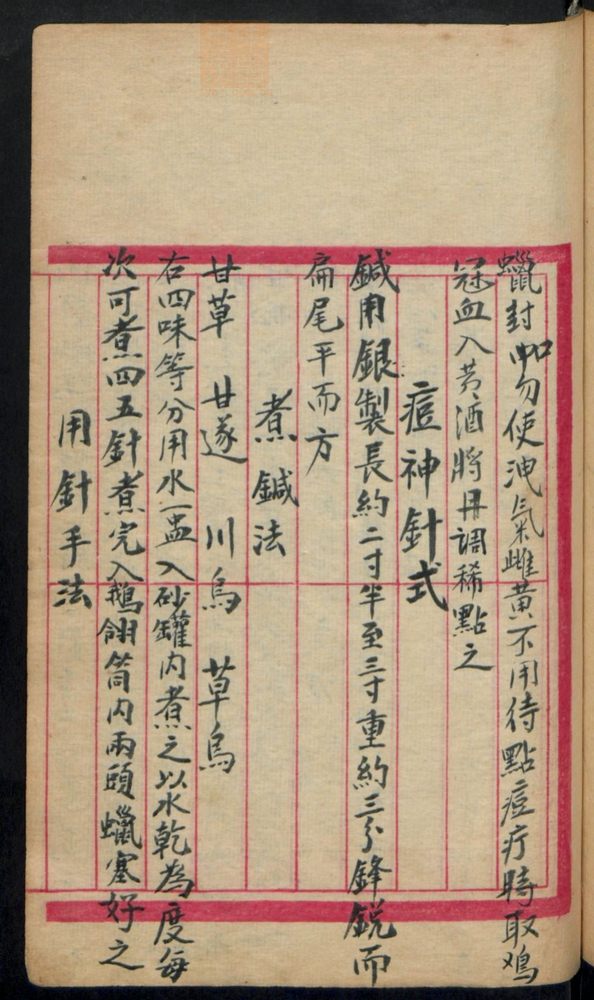 蠟封口勿使洩氣雌黃不用待點痘疔時取鳮
冠血入黃酒將丹調稀點之
痘神針式
鍼用銀製長約二寸半至三寸重約三分鋒銳而
扁尾平而方
煮鍼法
甘草 甘遂 川烏 草烏
右四味等分用水一盅入砂罐內煮之以水乾為度每
次可煮四五針煮完入鵝翎筒內兩頭蠟塞好之
用針手法